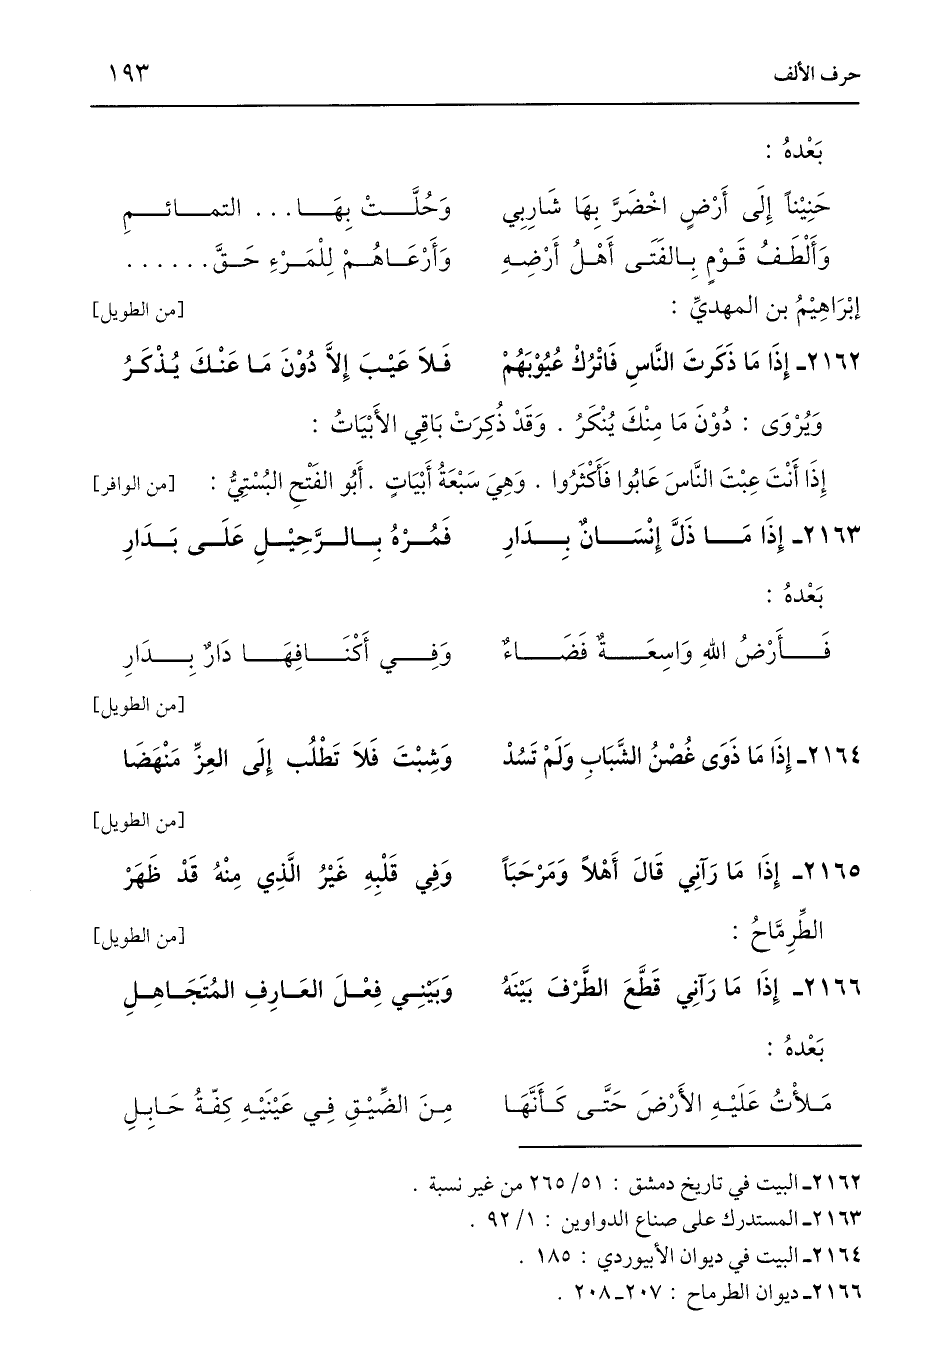 حرف الألف ١٩٣
بَعْدهُ :
حَنِيْناً إِلَى أَرْضٍ اخْضَرَّ بِهَا شَارِبِي وَحُلَّتْ بِهَا... التمائمِ
وَأَلْطَفُ قَوْمٍ بِالفَتَى أَهْلُ أَرْضِهِ وَأَرْعَاهُمْ لِلْمَرْءِ حَقَّ......
إبْرَاهِيْمُ بن المهديِّ : [من الطويل]
٢١٦٢ـ إِذَا مَا ذَكَرتَ النَّاسِ فَاتْرُكْ عُيُوْبَهُمْ فَلاَ عَيْبَ إِلاَّ دُوْنَ مَا عَنْكَ يُذْكَرُ
وَيُرْوَى : دُوْنَ مَا مِنْكَ يُنْكَرُ . وَقَدْ ذُكِرَتْ بَاقِي الأَبْيَاتُ :
إِذَا أَنْتَ عِبْتَ النَّاسَ عَابُوا فَأَكْثَرُوا . وَهِيَ سَبْعَةُ أَبْيَاتٍ . أَبُو الفَتْحِ البُسْتِيُّ : [من الوافر]
٢١٦٣ـ إِذَا مَا ذَلَّ إِنْسَانٌ بِدَارِ فَمُرْهُ بِالرَّحِيْلِ عَلَى بَدَارِ
بَعْدهُ :
فَأَرْضُ اللهِ وَاسِعَةٌ فَضَاءٌ وَفِي أَكْنَافِهَا دَارٌ بِدَارِ
[من الطويل]
٢١٦٤ـ إِذَا مَا ذَوَى غُصْنُ الشَّبَابِ وَلَمْ تَسُدْ وَشِبْتَ فَلاَ تَطْلُب إِلَى العِزِّ مَنْهَضَا
[من الطويل]
٢١٦٥ـ إِذَا مَا رَآنِي قَالَ أَهْلاً وَمَرْحَبَاً وَفِي قَلْبِهِ غَيْرُ الَّذِي مِنْهُ قَدْ ظَهَرْ
الطِّرِمَّاحُ : [من الطويل]
٢١٦٦ـ إِذَا مَا رَآنِي قَطَّعَ الطَّرْفَ بَيْنَهُ وَبَيْنِي فِعْلَ العَارِفِ المُتَجَاهِلِ
بَعْدهُ :
مَلأْتُ عَلَيْهِ الأَرْضَ حَتَّى كَأَنَّهَا مِنَ الضِّيْقِ فِي عَيْنَيْهِ كِفّةُ حَابِلِ
٢١٦٢ـ البيت في تاريخ دمشق : ٥١/ ٢٦٥ من غير نسبة .
٢١٦٣ـ المستدرك على صناع الدواوين : ١/ ٩٢ .
٢١٦٤ـ البيت في ديوان الأبيوردي : ١٨٥ .
٢١٦٦ـ ديوان الطرماح : ٢٠٧ـ٢٠٨ .